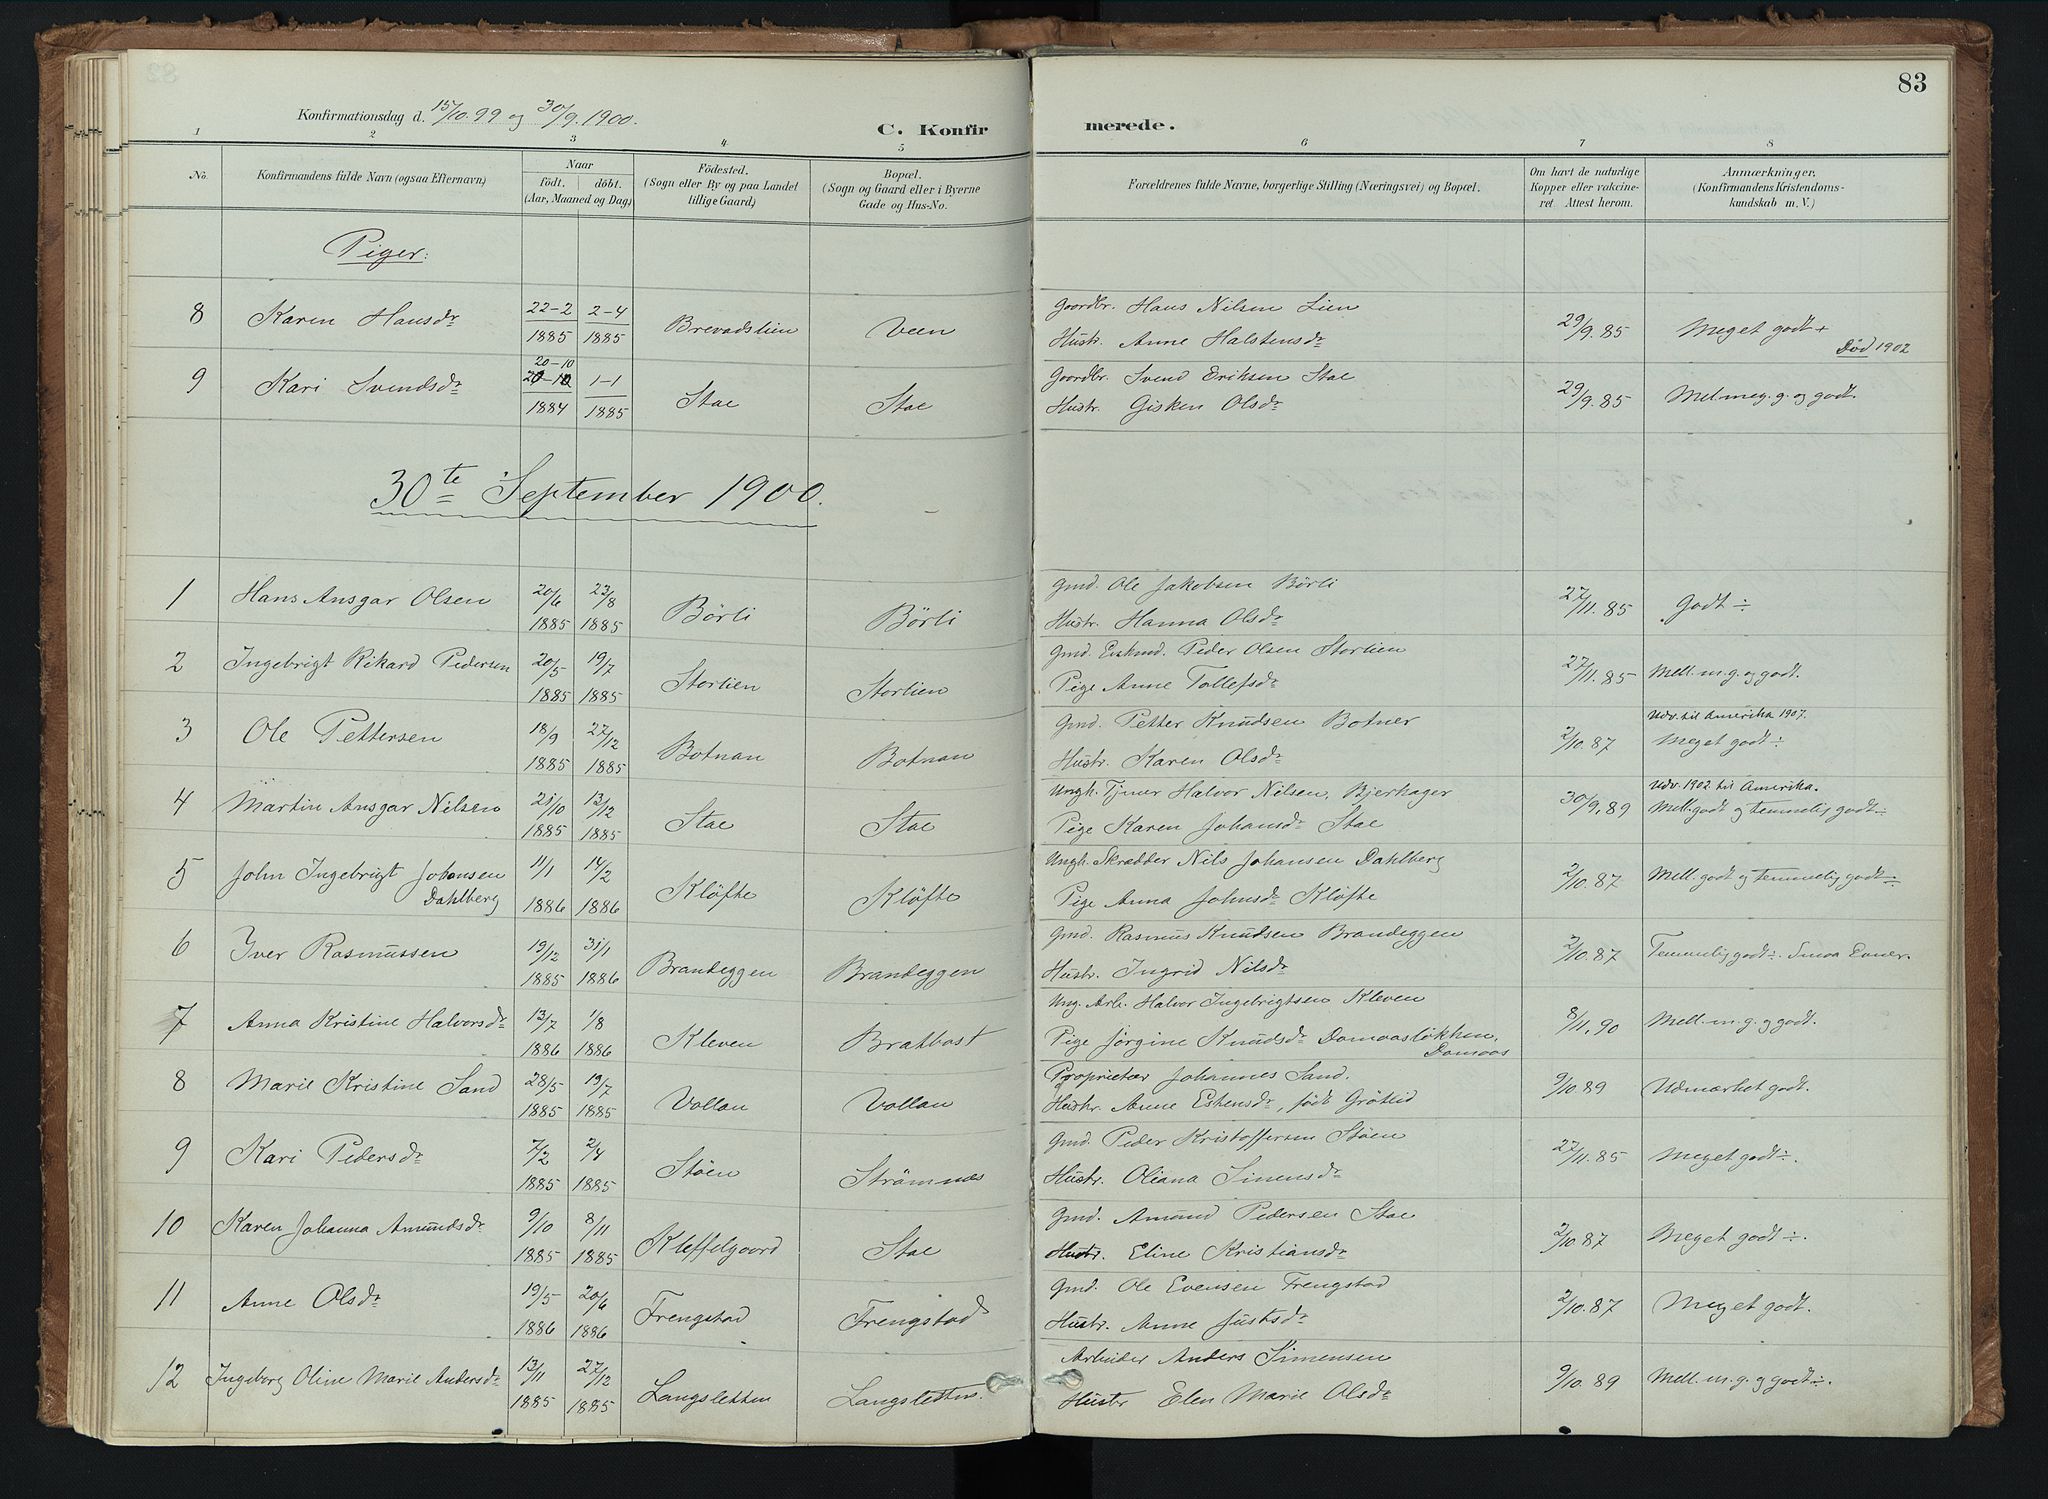 83
Konfirmationsdag d. 15/10.99 og 30/9.1900.
C. Konfirmerede.
1 2 3 4 5 6 7 8
No. Konfirmandens fulde Navn (ogsaa Efternavn) Naar født. døbt. (Aar, Maaned og Dag) Födested. (Sogn eller By og paa Landet tillige Gaard) Bopæl. (Sogn og Gaard eller i Byerne Gade og Hus-No. Forældrenes fulde Navne, borgerlige Stilling (Næringsvei) og Bopæl. Om havt de naturlige Kopper eller vakcineret. Attest herom. Anmærkninger. (Konfirmandens Kristendomskundskab m. V.)
Piger:
8 Karen Hansdr 22-2 1885 2-4 1885 Brevadslien Veen Gaardbr. Hans Nilsen Lien
Hustr. Anne Halstensdr 29/9.85 Meget godt +
Död 1902
9 Kari Svendsdr 20-10 1884 1-1 1885 Stae Stae Gaardbr. Svend Eriksen Stae
Hustr. Gisken Olsdr 29/9.85 Mel. meg. g. og godt.
30te September 1900.
1 Hans Ansgar Olsen 20/6 1885 23/8 1885 Börli Börli Gmd. Ole Jakobsen Börli
Hustr. Hanna Olsdr 27/11.85 Godt ÷
2 Ingebrigt Rikard Pedersen 20/5 1885 19/7 1885 Storlien Storlien Gmd. Peder Olsen Storlien
Pige Anne Tollefsdr 27/11.85 Mell. m. g. og godt.
3 Ole Pettersen 18/9 1885 27/12 1885 Botnan Botnan Gmd. Petter Knudsen Botner
Hustr. Karen Olsdr 2/10.87 Udv. til Amerika 1907.
Meget godt ÷
4 Martin Ansgar Nilsen 21/10 1885 13/12 1885 Stae Stae Ungk. Tjener Halvor Nilsen, Bjerhager
Pige Karen Johansdr Stae 30/9.89 Udv. 1902 til Amerika.
Mell. godt og temmelig godt ÷
5 John Ingebrigt Johansen Dahlberg 11/1 1886 14/2 1886 Klöfte Klöfte Ungk. Skrædder Nils Johansen Dahlberg
Pige Anna Johnsdr Klöfte 2/10.87 Mell. godt og temmelig godt ÷
6 Iver Rasmussen 19/12 1885 31/1 1886 Brandeggen Brandeggen Gmd. Rasmus Knudsen Brandeggen
Hustr. Ingrid Nilsdr 2/10.87 Temmelig godt ÷. Smaa Evner.
7 Anna Kristine Halvorsdr 13/7 1886 1/8 1886 Kleven Bratbost Ung. Arb. Halvor Ingebrigtsen Kleven
Pige Jørgine Knudsdr Domaasløkken,
Domaas 8/11.90 Mell. m. g. og godt.
8 Marie Kristine Sand 28/5 1885 19/7 1885 Vollan Vollan Proprietær Johannes Sand.
Hustr. Anne Eskensdr, födt Grötlid 9/10.89 Udmærket godt.
9 Kari Pedersdr 7/2 1885 2/4 1885 Stöen Strömnes Gmd. Peder Kristoffersen Stöen
Hustr. Oliana Simensdr 27/11.85 Meget godt ÷.
10 Karen Johanna Amundsdr 9/10 1885 8/11 1885 Kleffelgaard Stae Gmd. Amund Pedersen Stae
Hustr. Eline Kristiansdr 2/10.87 Meget godt ÷.
11 Anne Olsdr 19/5 1886 20/6 1886 Frengstad Frengstad Gmd. Ole Evensen Frengstad
Hustr. Anne Justsdr 2/10.87 Meget godt.
12 Ingeborg Oline Marie Andersdr 13/11 1885 27/12 1885 Langsletten Langsletten Arbeider Anders Simensen
Hustr Elen Marie Olsdr 9/10.89 Mell. m. g. og godt ÷.